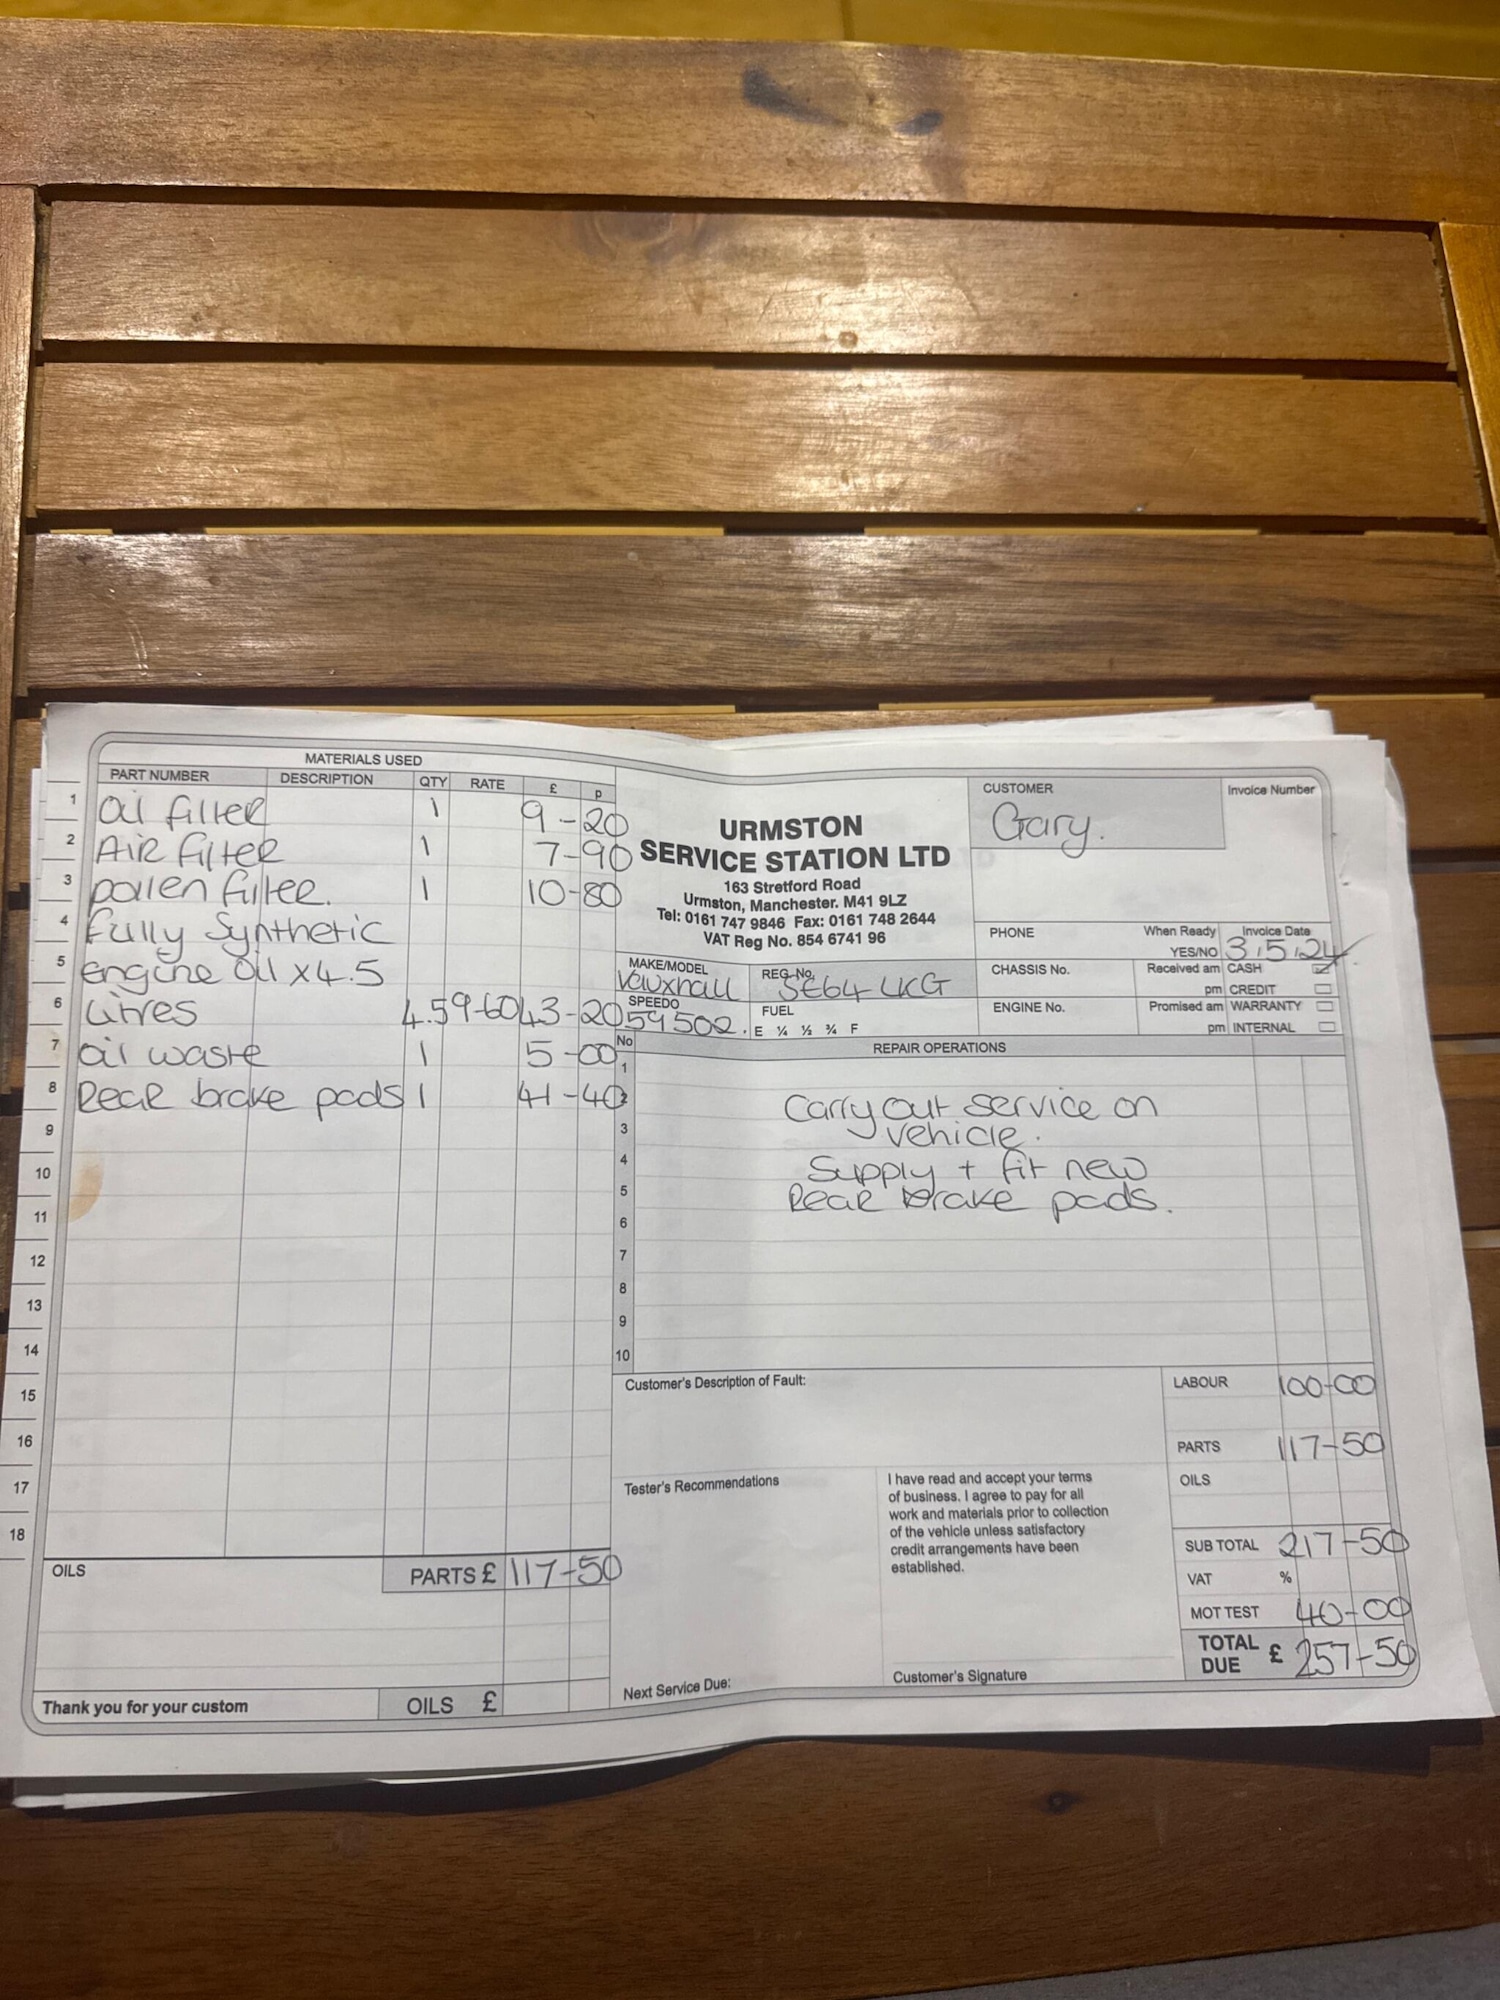 MATERIALS USED
PART NUMBER DESCRIPTION QTY RATE £ p
1 Oil filter 1 9-20
2 AIR filter 1 7-90
3 pollen filter. 1 10-80
4 fully synthetic
5 engine oil x4.5
6 Litres 4.5 9-60 43-20
7 oil waste 1 5-00
8 Rear brake pads 1 41-40
9
10
11
12
13
14
15
16
17
18
PARTS £ 117-50
OILS
Thank you for your custom
OILS £
URMSTON
SERVICE STATION LTD
163 Stretford Road
Urmston, Manchester. M41 9LZ
Tel: 0161 747 9846 Fax: 0161 748 2644
VAT Reg No. 854 6741 96
CUSTOMER
Gary.
Invoice Number
PHONE
When Ready
YES/NO
Invoice Date
3.5.24
MAKE/MODEL
Vauxhall
REG No.
CHASSIS No.
Received am CASH
pm CREDIT
SPEEDO
59502.
FUEL
E ¼ ½ ¾ F
ENGINE No.
Promised am WARRANTY
pm INTERNAL
No REPAIR OPERATIONS
1
2 Carry out service on
3 vehicle.
4 Supply + fit new
5 Rear brake pads.
6
7
8
9
10
Customer's Description of Fault:
LABOUR 100-00
PARTS 117-50
OILS
SUB TOTAL 217-50
VAT %
MOT TEST 40-00
TOTAL DUE £ 257-50
Tester's Recommendations
I have read and accept your terms
of business. I agree to pay for all
work and materials prior to collection
of the vehicle unless satisfactory
credit arrangements have been
established.
Next Service Due:
Customer's Signature